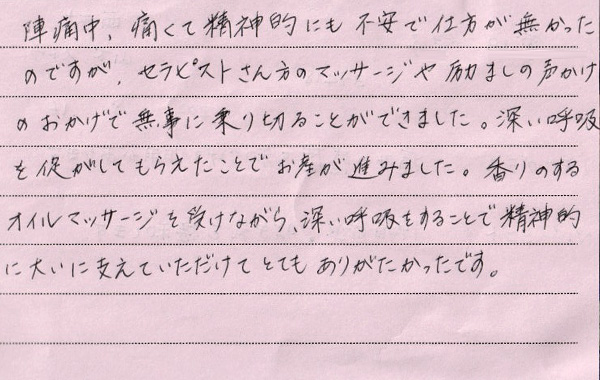 陣痛中、痛くて精神的にも不安で仕方が無かった
のですが、セラピストさん方のマッサージや励ましの声かけ
のおかげで無事に乗り切ることができました。深い呼吸
を促がしてもらえたことでお産が進みました。香りのする
オイルマッサージを受けながら、深い呼吸をすることで精神的
に大いに支えていただけてとてもありがたかったです。